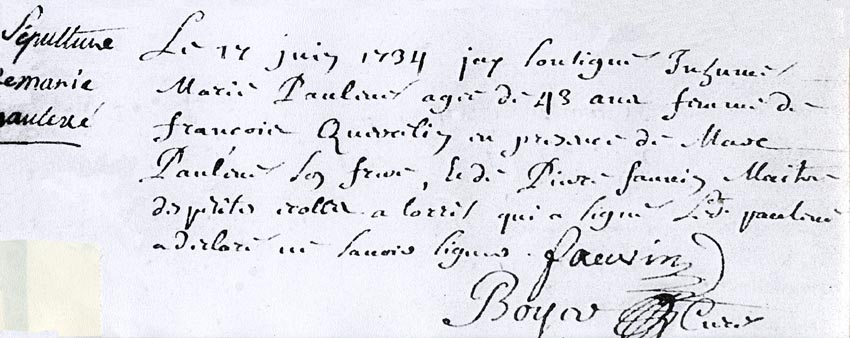 Sépulture
demarie
paulevé
Le 17 juin 1734 jay soussigné Inhumé
Marie Paulevé agée de 43 ans femme de
francois Quervelin en presence de Marc
Paulevé son frere, et de Pierre fauvin Maitre
des petites ecolles a lorris qui a signé Led. paulevé
a declaré ne scavoir signer. fauvin
Boyer Curé